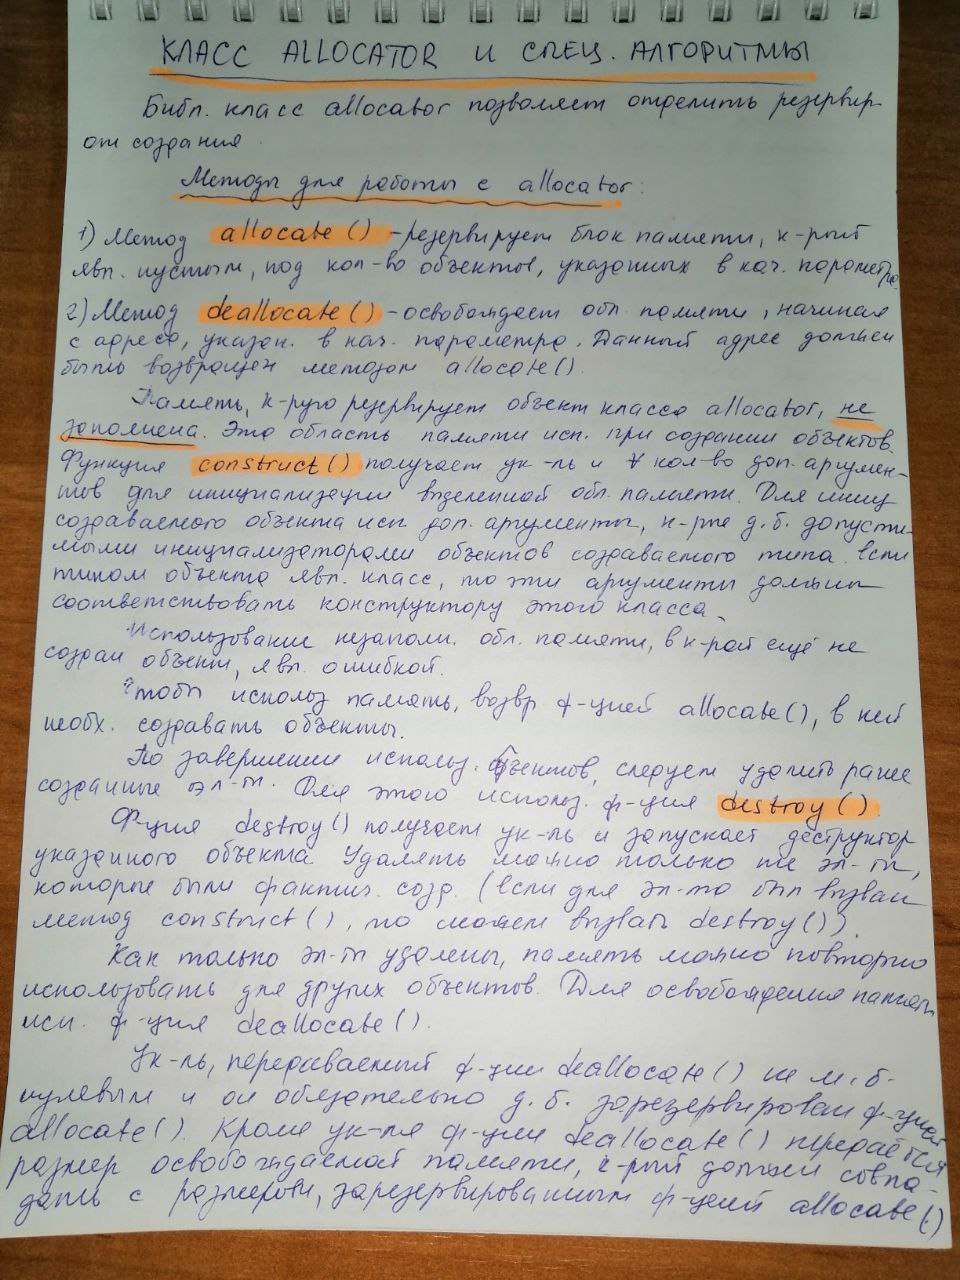 КЛАСС ALLOCATOR И СПЕЦ. АЛГОРИТМЫ
Библ. класс allocator позволяет отделить резервир-
от создания.
Методы для работы с allocator:
1) Метод allocate() - резервирует блок памяти, к-рый
явл. пустым, под кол-во объектов, указанных в кач. параметра
2) Метод deallocate() - освобождает обл. памяти, начиная
с адреса, указан. в кач. параметра. Данный адрес должен
быть возвращен методом allocate().
Память, к-рую резервирует объект класса allocator, не
заполнена. Эта область памяти исп. при создании объектов.
Функция construct() получает ук-ль и ∀ кол-во доп. аргумен-
тов для инициализации выделенной обл. памяти. Для иниц
создаваемого объекта исп доп. аргументы, к-рые д.б. допусти-
мыми инициализаторами объектов создаваемого типа. Если
типом объекта явл. класс, то эти аргументы должны
соответствовать конструктору этого класса.
Использование незаполн. обл. памяти, в к-рой ещё не
создан объект, явл. ошибкой.
Чтобы использ память, возвр ф-цией allocate(), в ней
необх. создавать объекты.
По завершении использ. объектов, следует удалить ранее
созданные эл-ты. Для этого использ. ф-ция destroy()
Ф-ция destroy() получает ук-ль и запускает деструктор
указанного объекта. Удалять можно только те эл-ты,
которые были фактич. созд. (если для эл-та был вызван
метод construct(), то можем вызвать destroy()).
Как только эл-ты удалены, память можно повторно
использовать для других объектов. Для освобождения памяти
исп. ф-ция deallocate().
Ук-ль, передаваемый ф-ции deallocate() не м.б.
нулевым и он обязательно д.б. зарезервирован ф-цией
allocate(). Кроме ук-ля ф-ции deallocate() передаётся
размер освобождаемой памяти, к-рый должен совпа-
дать с размером, зарезервированным ф-цией allocate()